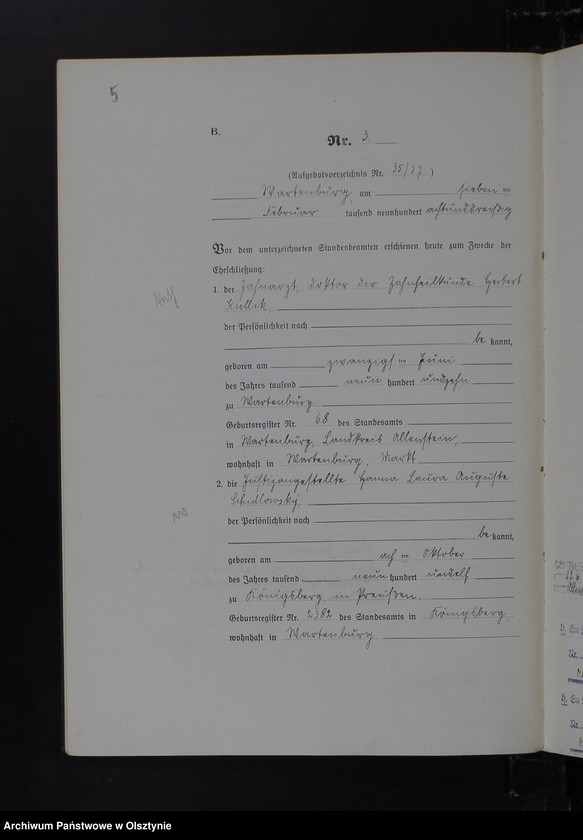 5
B.
Nr. 3
(Aufgebotsverzeichnis Nr. 35/37)
Wartenburg, am sieben ten
Februar tausend neunhundert achtunddreißig
Vor dem unterzeichneten Standesbeamten erschienen heute zum Zwecke der
Eheschließung:
1. der Zahnarzt, Doktor der Zahnheilkunde Herbert
Kullik,
der Persönlichkeit nach
be kannt,
geboren am zwanzigsten Juni
des Jahres tausend neun hundert undzehn
zu Wartenburg.
Geburtsregister Nr. 68 des Standesamts
in Wartenburg, Landkreis Allenstein,
wohnhaft in Wartenburg, Markt
2. die Justizangestellte Hanna Laura Auguste
Schidlowsky,
der Persönlichkeit nach
be kannt,
geboren am achten Oktober
des Jahres tausend neun hundert undelf
zu Königsberg in Preußen.
Geburtsregister Nr. 2382 des Standesamts in Königsberg,
wohnhaft in Wartenburg
Archiwum Państwowe w Olsztynie